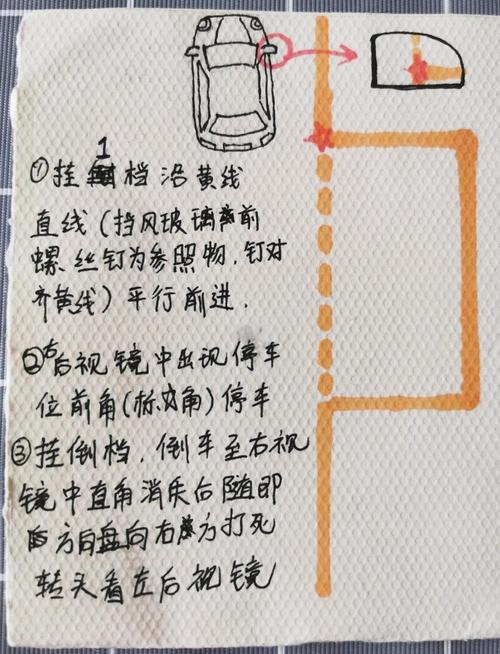 ①挂1档沿黄线
直线(挡风玻璃前
螺丝钉为参照物,钉对
齐黄线)平行前进.
②右后视镜中出现停车
位前角(标角)停车
③挂倒档,倒车至右视
镜中直角消失后随即
方向盘向右方打死
转头看左后视镜